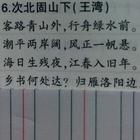 6.次北固山下(王湾)
客路青山外,行舟绿水前。
潮平两岸阔,风正一帆悬。
海日生残夜,江春入旧年。
乡书何处达?归雁洛阳边